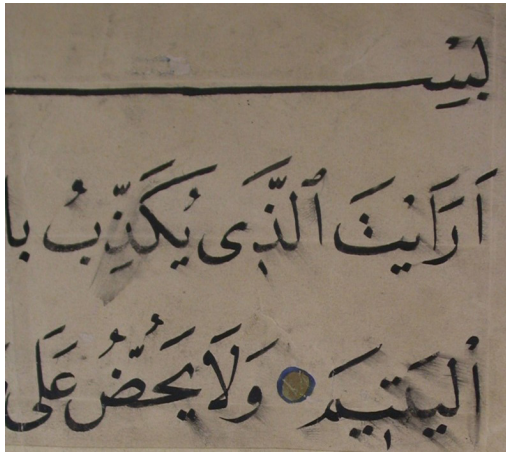 بِسْ
اَرَاَيْتَ الَّذٖى يُكَذِّبُ با
اْليَتٖيمَ وَلَا يَحُضُّ عَلٰى